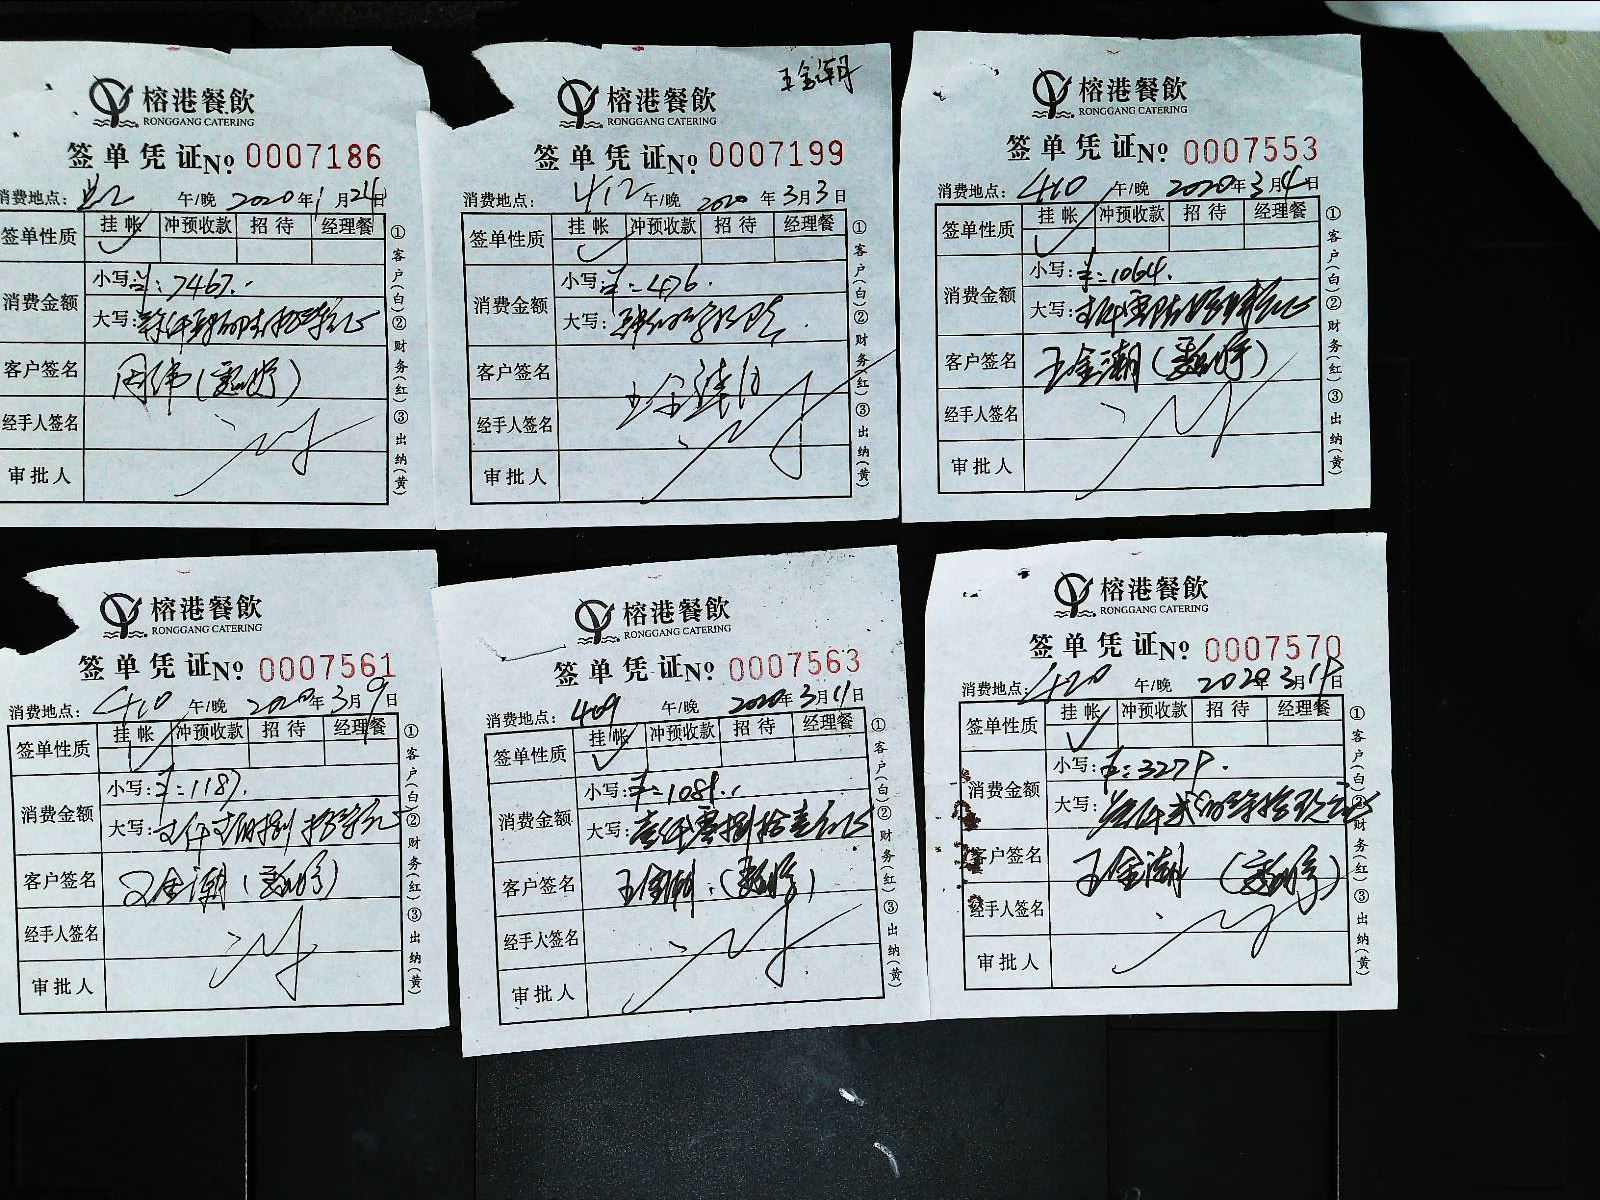 榕港餐飲
RONGGANG CATERING
签单凭证 No 0007186
消费地点: 午/晚 2020年1月24日
签单性质 挂帐 冲预收款 招待 经理餐
消费金额 小写: ¥:7467.
大写:
客户签名
经手人签名
审批人
①客户(白)②财务(红)③出纳(黄)
王金潮
榕港餐飲
RONGGANG CATERING
签单凭证 No 0007199
消费地点: 412 午/晚 2020年3月3日
签单性质 挂帐 冲预收款 招待 经理餐
消费金额 小写: ¥:476.
大写:
客户签名
经手人签名
审批人
①客户(白)②财务(红)③出纳(黄)
榕港餐飲
RONGGANG CATERING
签单凭证 No 0007553
消费地点: 410 午/晚 2020年3月4日
签单性质 挂帐 冲预收款 招待 经理餐
消费金额 小写: ¥:1064.
大写:
客户签名 王金潮
经手人签名
审批人
①客户(白)②财务(红)③出纳(黄)
榕港餐飲
RONGGANG CATERING
签单凭证 No 0007561
消费地点: 410 午/晚 2020年3月9日
签单性质 挂帐 冲预收款 招待 经理餐
消费金额 小写: ¥:1187.
大写:
客户签名 王金潮
经手人签名
审批人
①客户(白)②财务(红)③出纳(黄)
榕港餐飲
RONGGANG CATERING
签单凭证 No 0007563
消费地点: 409 午/晚 2020年3月11日
签单性质 挂帐 冲预收款 招待 经理餐
消费金额 小写: ¥:1081.
大写: 壹仟零捌拾壹元正
客户签名 王金潮
经手人签名
审批人
①客户(白)②财务(红)③出纳(黄)
榕港餐飲
RONGGANG CATERING
签单凭证 No 0007570
消费地点: 420 午/晚 2020年3月日
签单性质 挂帐 冲预收款 招待 经理餐
消费金额 小写:
大写:
客户签名 王金潮
经手人签名
审批人
①客户(白)②财务(红)③出纳(黄)